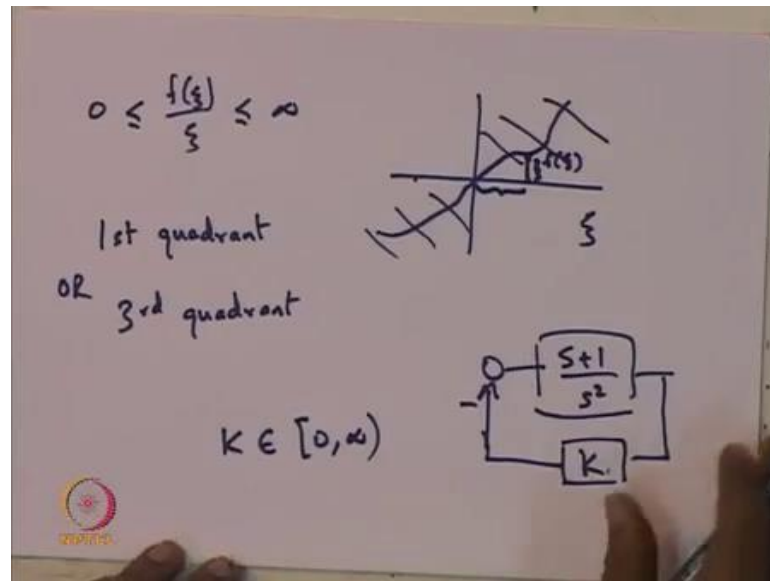 0 ≤ f(ξ)/ξ ≤ ∞
f(ξ)
ξ
1st quadrant
OR
3rd quadrant
S+1/s²
−
K ∈ [0, ∞)
K
NPTEL